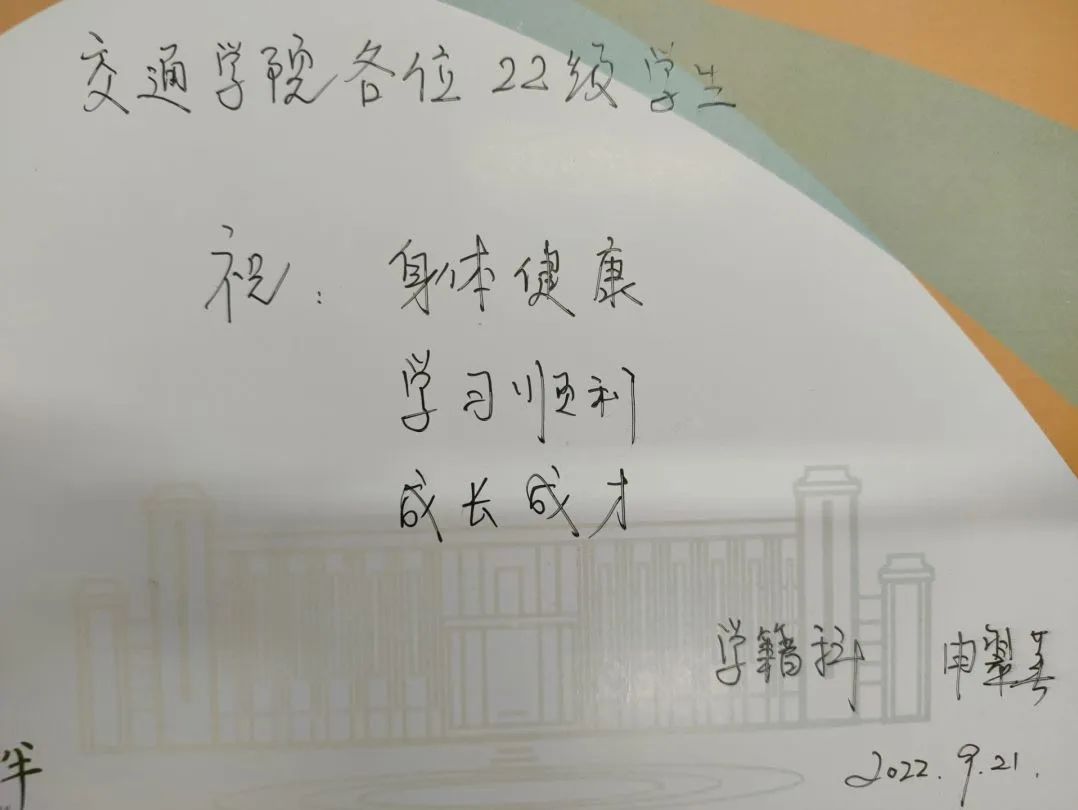 交通学院各位22级学生
祝：身体健康
学习顺利
成长成才
学籍科 申翠英
2022.9.21.